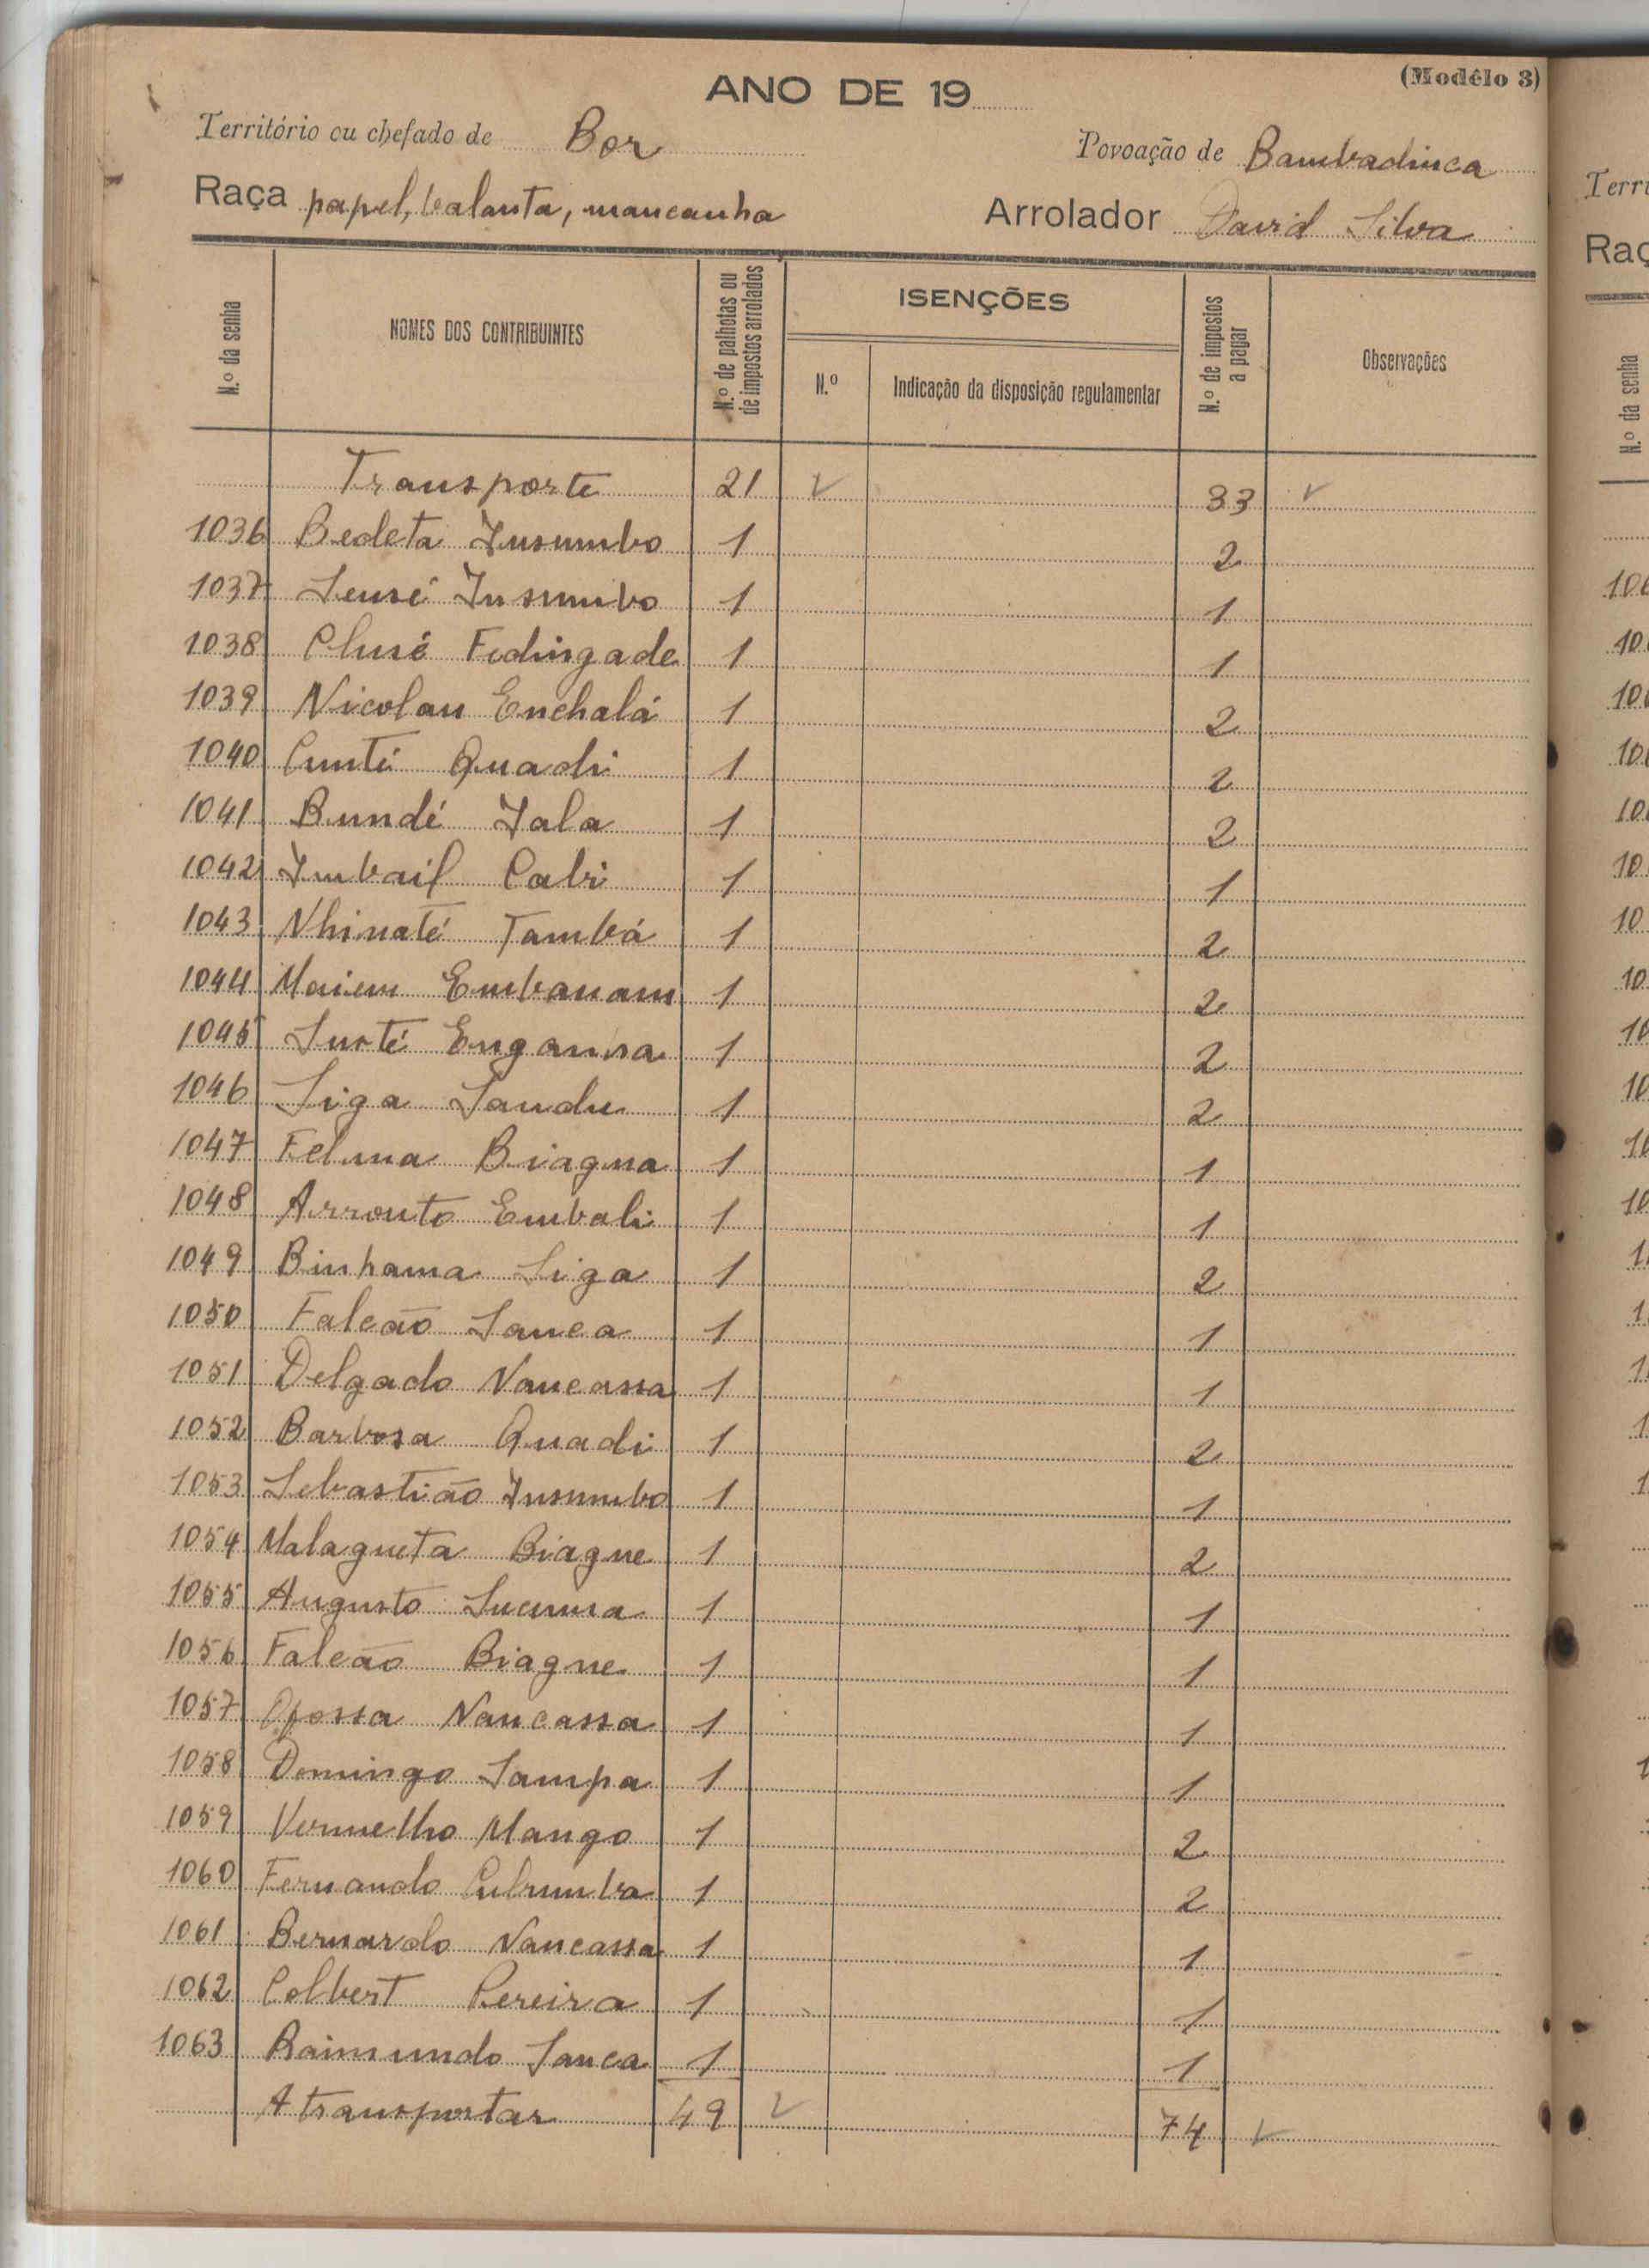 (Modêlo 3)
ANO DE 19
Território ou chefado de Bor
Povoação de Bambadinca
Raça papel, balanta, mancanha
Arrolador David Silva
N.º da senha
NOMES DOS CONTRIBUINTES
N.º de palhotas ou de impostos arrolados
ISENÇÕES
N.º
Indicação da disposição regulamentar
N.º de impostos a pagar
Observações
Transporte 21 33
1036 Bedeta Insumbo 1 2
1037 Insumbo 1 1
1038 Fodingade 1 1
1039 Nicolau Enchalá 1 2
1040 Cunté Quadi 1 2
1041 Bundé Iala 1 2
1042 Imbaif Cabi 1 1
1043 Nhinaté Tambá 1 2
1044 Embanam 1 2
1045 1 2
1046 Siga Sandu 1 2
1047 Biagna 1 1
1048 Arronto Embali 1 1
1049 Binhama Siga 1 2
1050 Falcão Sanca 1 1
1051 Delgado Nancassa 1 1
1052 Barbosa Quadi 1 2
1053 Sebastião Insumbo 1 1
1054 Malagueta Biague 1 2
1055 Augusto 1 1
1056 Falcão Biague 1 1
1057 Nancassa 1 1
1058 Domingo Sampa 1 1
1059 Vermelho Mango 1 2
1060 Fernando Cubumba 1 2
1061 Bernardo Nancassa 1 1
1062 Colbert Pereira 1 1
1063 Raimundo Sanca 1 1
A transportar 49 74
Terri
Raç
N.º da senha